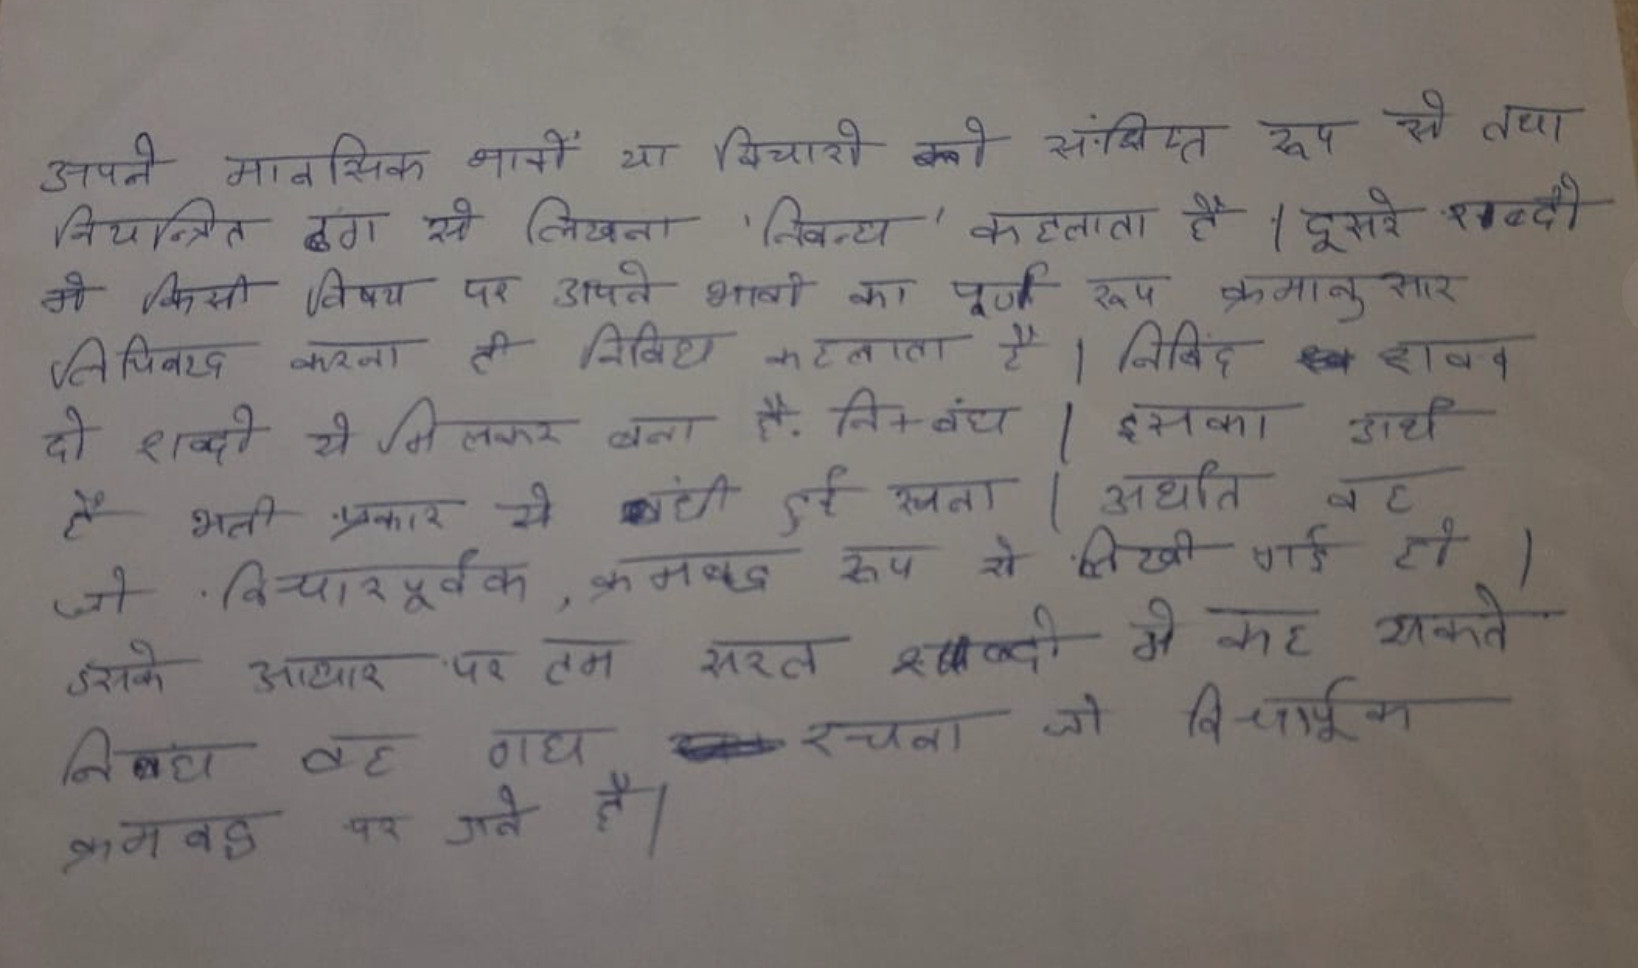 अपने मानसिक भावों या विचारो को संक्षिप्त रूप से तथा
नियन्त्रित ढंग से लिखना 'निबन्ध' कहलाता है । दूसरे शब्दो
मे किसी विषय पर अपने भावो का पूर्ण रूप क्रमानुसार
लिपिबद्ध करना ही निबिध कहलाता है । निबिंद
दो शब्दो से मिलकर बना है. नि+बंध । इसका अर्थ
है भली प्रकार से बंधी हुई रचना । अर्थात वह
जो विचारपूर्वक, क्रमबद्ध रूप से लिखी गई हो ।
उसके आधार पर हम सरल शब्दो मे कह सकते
निबंध वह गध रचना जो
क्रमबद्ध पर है ।